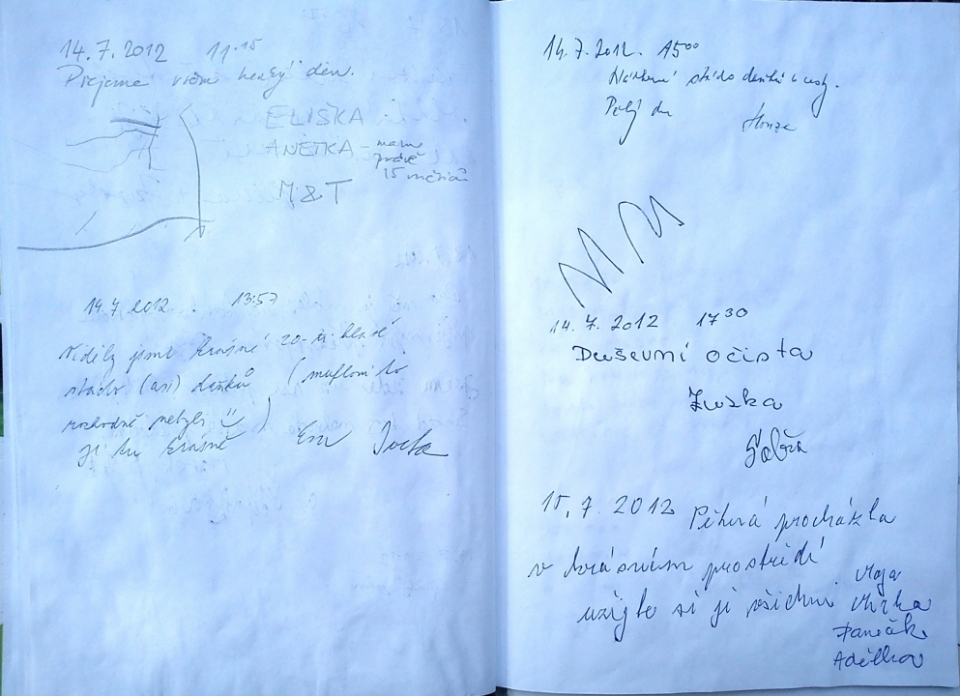 14.7.2012 11.15
Přejeme všem hezký den.
ELIŠKA
ANETKA - mam
právě
15 měsíců
M&T
14.7.2012. 13:57
Viděly jsme krásné 20-ti hlavé
stádo (asi) daňků (mufloni to
rozhodně nebyli )
je tu krásně Eva
14.7.2012. 15⁰⁰
stádo daňků
Pěkný den Honza
M M
14.7.2012 17³⁰
Duševní očista
Zuzka
15.7 2012 Pěkná procházka
v krásném prostředí
užijte si ji všichni
Mirka
Adélka